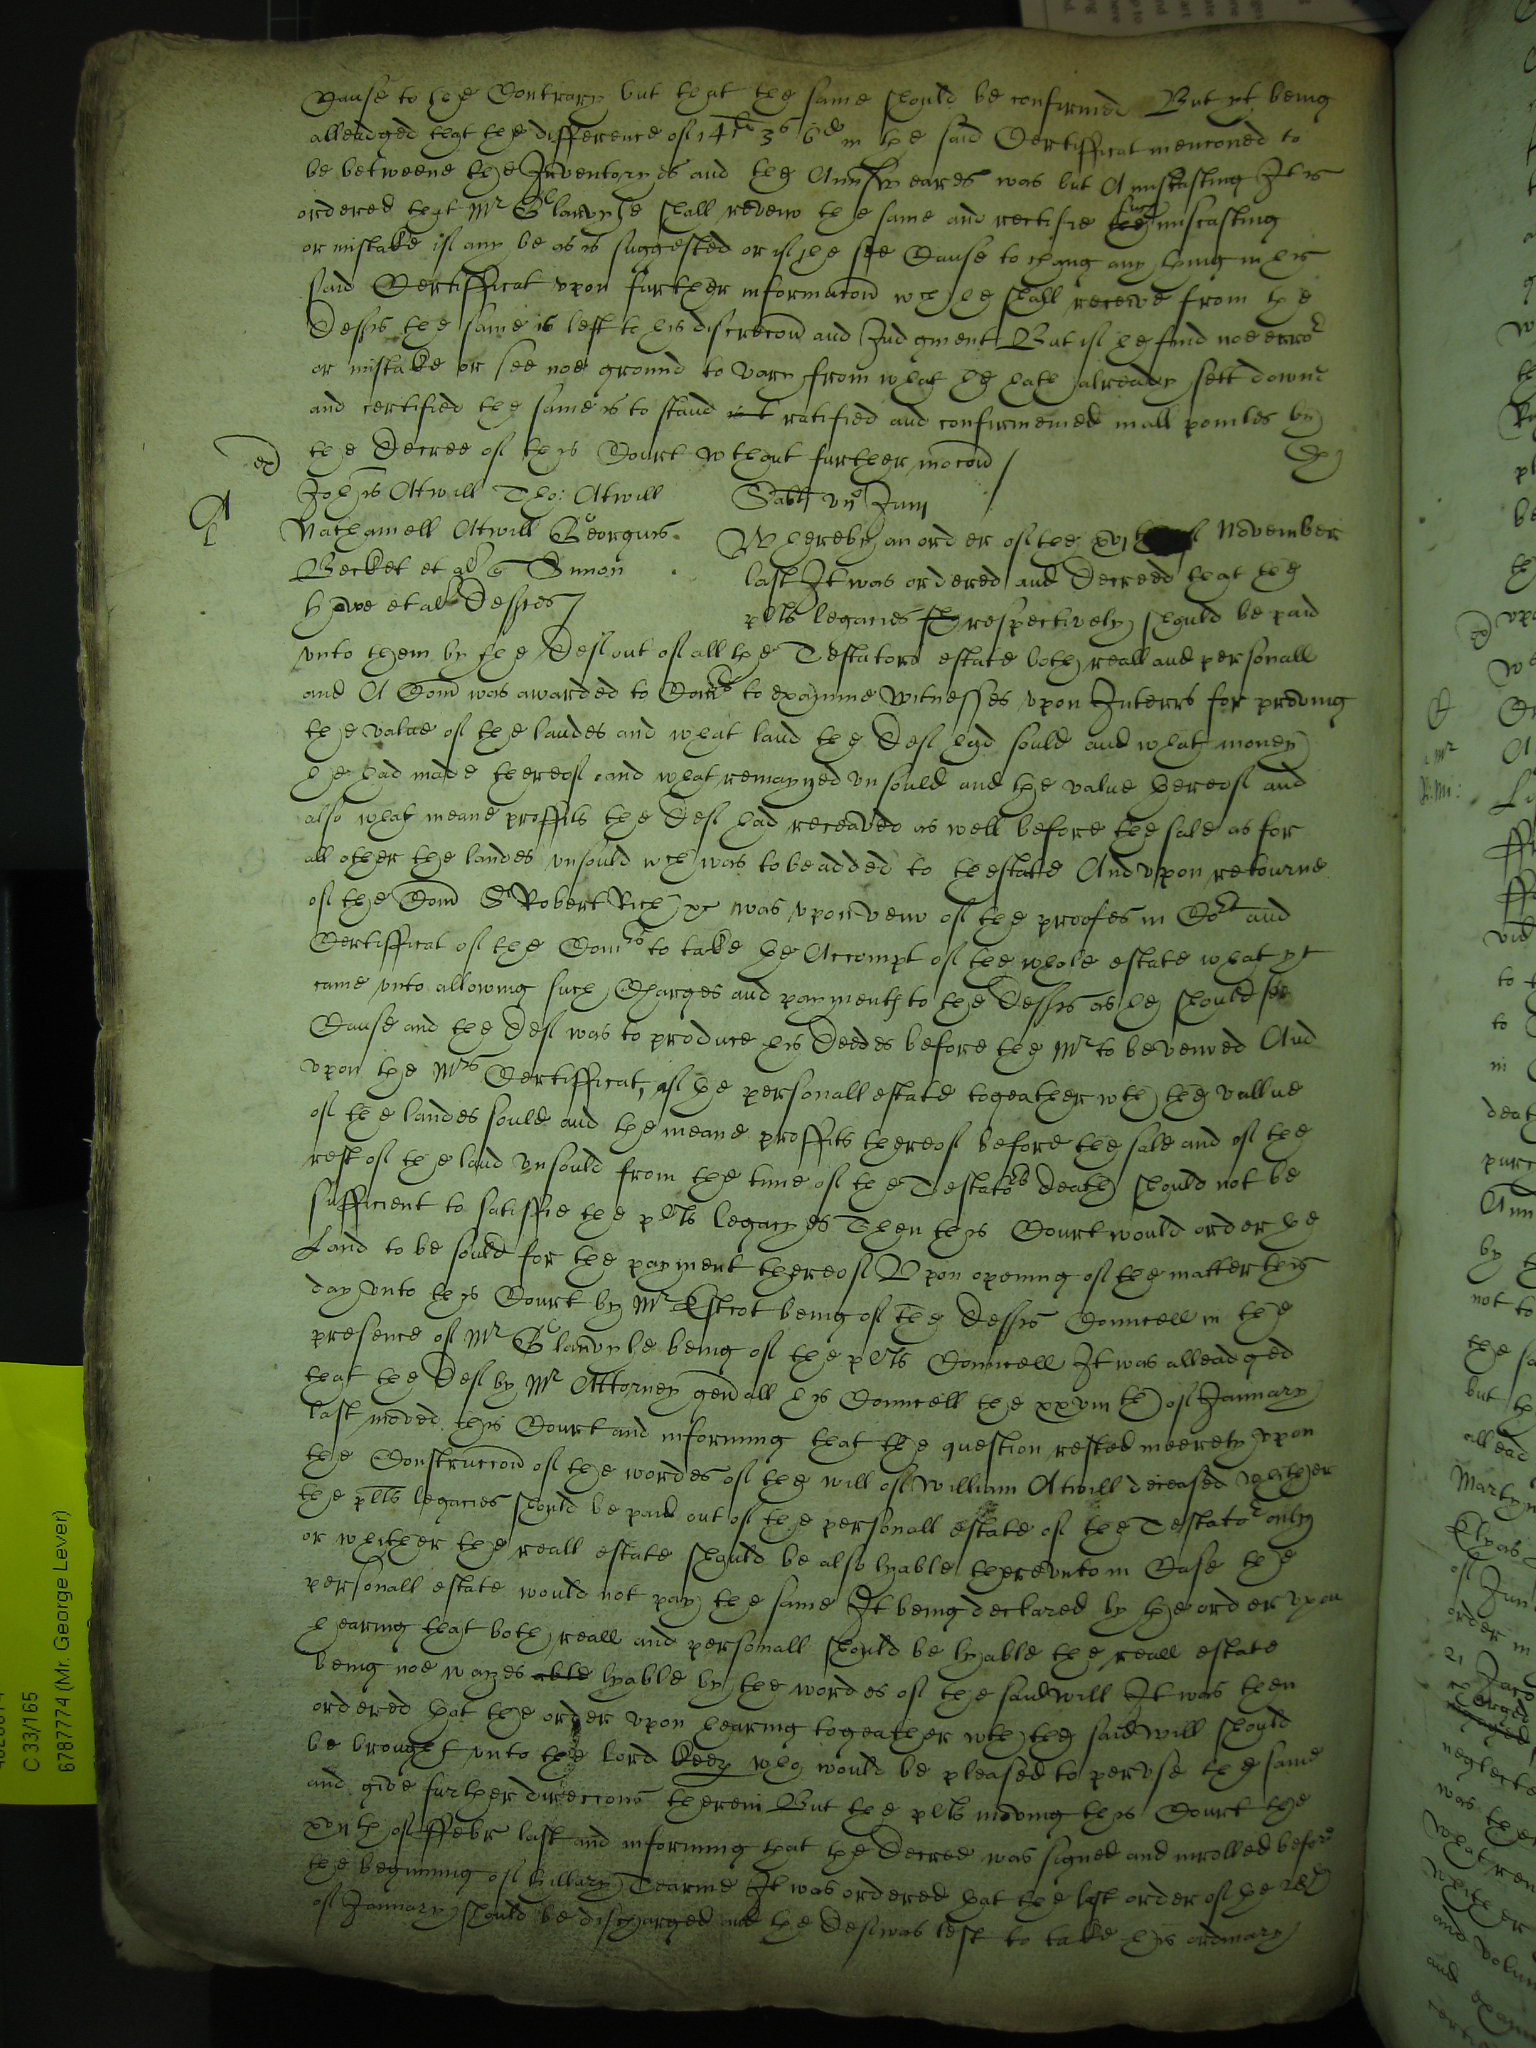 Cause to the Contrary but that the same should be confirmed But yt being
alleadged that the difference of 141li 3s 6d in the said Certifficat menconed to
be betweene the Inventoryes and the Answeares was but A miscasting It is
ordered that Mr Glanvyle shall review the same and rectifie the such miscasting
or mistake if any be as is suggested or if he see Cause to chang any thing in his
said Certifficat upon further informacon wch he shall receive from the
Defts the same is left to his discrecon and Judgment But if he find noe error
or mistake or see noe ground to vary from what he hath already sett downe
and certified the same is to stand ratified and confirmed in all pointes by
the Decree of this Court wthout further mocon
ex
A
Johis Atwill Tho: Atwill
Nathaniell Atwill Georgius
Becket et al Simon
howe et al Deftes
Sabti Junij
Whereby an order of the xvjth of November
last It was ordered and Decreed that the
plts legacies respectively should be paid
unto them by the Deft out of all the Testators estate both reall and personall
and A Com was awarded to Comrs to examine witnesses upon Interrs for proving
the value of the landes and what land the Deft had sould and what money
he had made thereof and what remayned unsould and the value thereof and
also what meane proffits the Deft had receaved as well before the sale as for
all other the landes unsould wch was to be added to thestate And upon retourne
of the Com Sr Robert Rich was upon view of the proofes in Cort and
Certifficat of the Comrs to take the Accompt of the whole estate what yt
came unto allowing such Charges and payments to the Defts as he should see
Cause and the Deft was to produce his Deedes before the Mr to be viewed And
upon the Mrs Certifficat, if the personall estate togeather wth the vallue
of the landes sould and the meane proffits thereof before the sale and of the
rest of the land unsould from the time of the Testators death should not be
sufficient to satisfie the plts legacyes Then this Court would order the
Land to be sould for the payment thereof Upon opening of the matter this
day unto this Court by Mr Estcot being of the Defts Councell in the
presence of Mr Glanvyle being of the plts Councell It was alleadged
that the Deft by Mr Attorney genall his Councell the xxviijth of January
last moved this Court and informing that the question rested meerely upon
the Construccon of the wordes of the will of William Atwill deceased whither
the plts legacies should be paid out of the personall estate of the Testator only
or whither the reall estate should be also lyable thereunto in Case the
personall estate would not pay the same It being declared by the order upon
hearing that both reall and personall should be lyable the reall estate
being noe wayes able lyable by the wordes of the said will It was then
ordered that the order upon hearing togeather wth the said will should
be brought unto the lord keep who would be pleased to peruse the same
and give further direccons therein But the plts moving this Court the
of ffebr last and informing that the Decree was signed and inrolled before
the beginning of hillary Tearme It was ordered that the last order of the 28th
of January should be discharged and the Deft was left to take his ordinary
C 33/165
6787774 (Mr. George Lever)